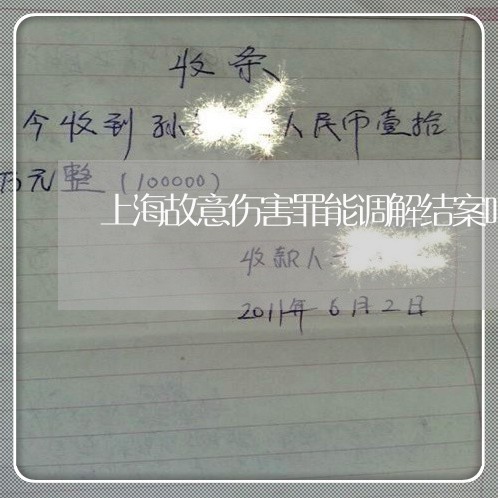 收条
今收到 孙 人民币壹拾
万元整（100000）
上海故意伤害罪能调解结案
收款人
2011年6月2日